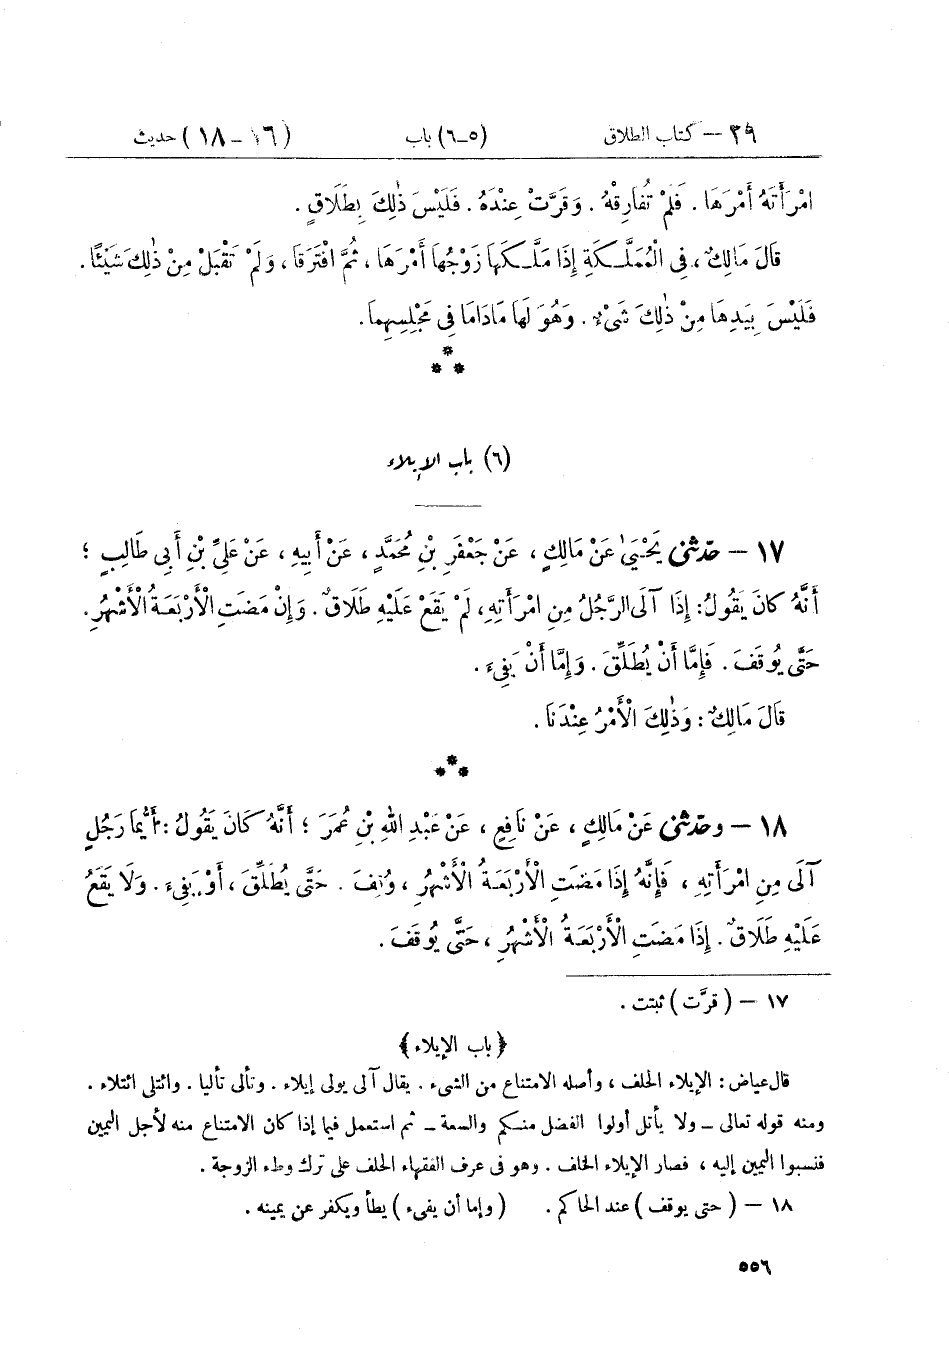 ٢٩ — كتاب الطلاق (٥-٦) باب (١٦ - ١٨) حديث
امْرَأَتَهُ أَمْرَهَا . فَلَمْ تُفَارِقْهُ . وَقَرَّتْ عِنْدَهُ . فَلَيْسَ ذٰلِكَ بِطَلَاقٍ .
قَالَ مَالِكٌ ، فِى الْمُمَلَّكَةِ إِذَا مَلَّكَهَا زَوْجُهَا أَمْرَهَا ، ثُمَّ افْتَرَقَا ، وَلَمْ تَقْبَلْ مِنْ ذٰلِكَ شَيْئًا .
فَلَيْسَ بِيَدِهَا مِنْ ذٰلِكَ شَىْءٌ . وَهُوَ لَهَا مَادَامَا فِى مَجْلِسِهِمَا .
*
* *
(٦) باب الإيلاء
١٧ — حدّثنى يَحْيَىٰ عَنْ مَالِكٍ ، عَنْ جَعْفَرِ بْنِ مُحَمَّدٍ ، عَنْ أَبِيهِ ، عَنْ عَلِىِّ بْنِ أَبِى طَالِبٍ ؛
أَنَّهُ كَانَ يَقُولُ : إِذَا آلَى الرَّجُلُ مِنِ امْرَأَتِهِ ، لَمْ يَقَعْ عَلَيْهِ طَلَاقٌ . وَإِنْ مَضَتِ الْأَرْبَعَةُ الْأَشْهُرِ .
حَتَّى يُوقَفَ . فَإِمَّا أَنْ يُطَلِّقَ . وَإِمَّا أَنْ يَفِىءَ .
قَالَ مَالِكٌ : وَذٰلِكَ الْأَمْرُ عِنْدَنَا .
*
* *
١٨ — وحدّثنى عَنْ مَالِكٍ ، عَنْ نَافِعٍ ، عَنْ عَبْدِ اللهِ بْنِ عُمَرَ ؛ أَنَّهُ كَانَ يَقُولُ : أَيُّمَا رَجُلٍ
آلَى مِنِ امْرَأَتِهِ ، فَإِنَّهُ إِذَا مَضَتِ الْأَرْبَعَةُ الْأَشْهُرِ ، وُقِفَ . حَتَّى يُطَلِّقَ ، أَوْ يَفِىءَ . وَلَا يَقَعُ
عَلَيْهِ طَلَاقٌ . إِذَا مَضَتِ الْأَرْبَعَةُ الْأَشْهُرِ ، حَتَّى يُوقَفَ .
١٧ — ( قرَّت ) ثبتت .
﴿ باب الإيلاء ﴾
قال عياض : الإيلاء الحلف ، وأصله الامتناع من الشىء . يقال آلى يولى إيلاء . وتألى تأليا . وائتلى ائتلاء .
ومنه قوله تعالى — ولا يأتل أولوا الفضل منكم والسعة — ثم استعمل فيما إذا كان الامتناع منه لأجل اليمين
فنسبوا اليمين إليه ، فصار الإيلاء الحلف . وهو فى عرف الفقهاء الحلف على ترك وطء الزوجة .
١٨ — ( حتى يوقف ) عند الحاكم . ( وإما أن يفىء ) يطأ ويكفر عن يمينه .
٥٥٦